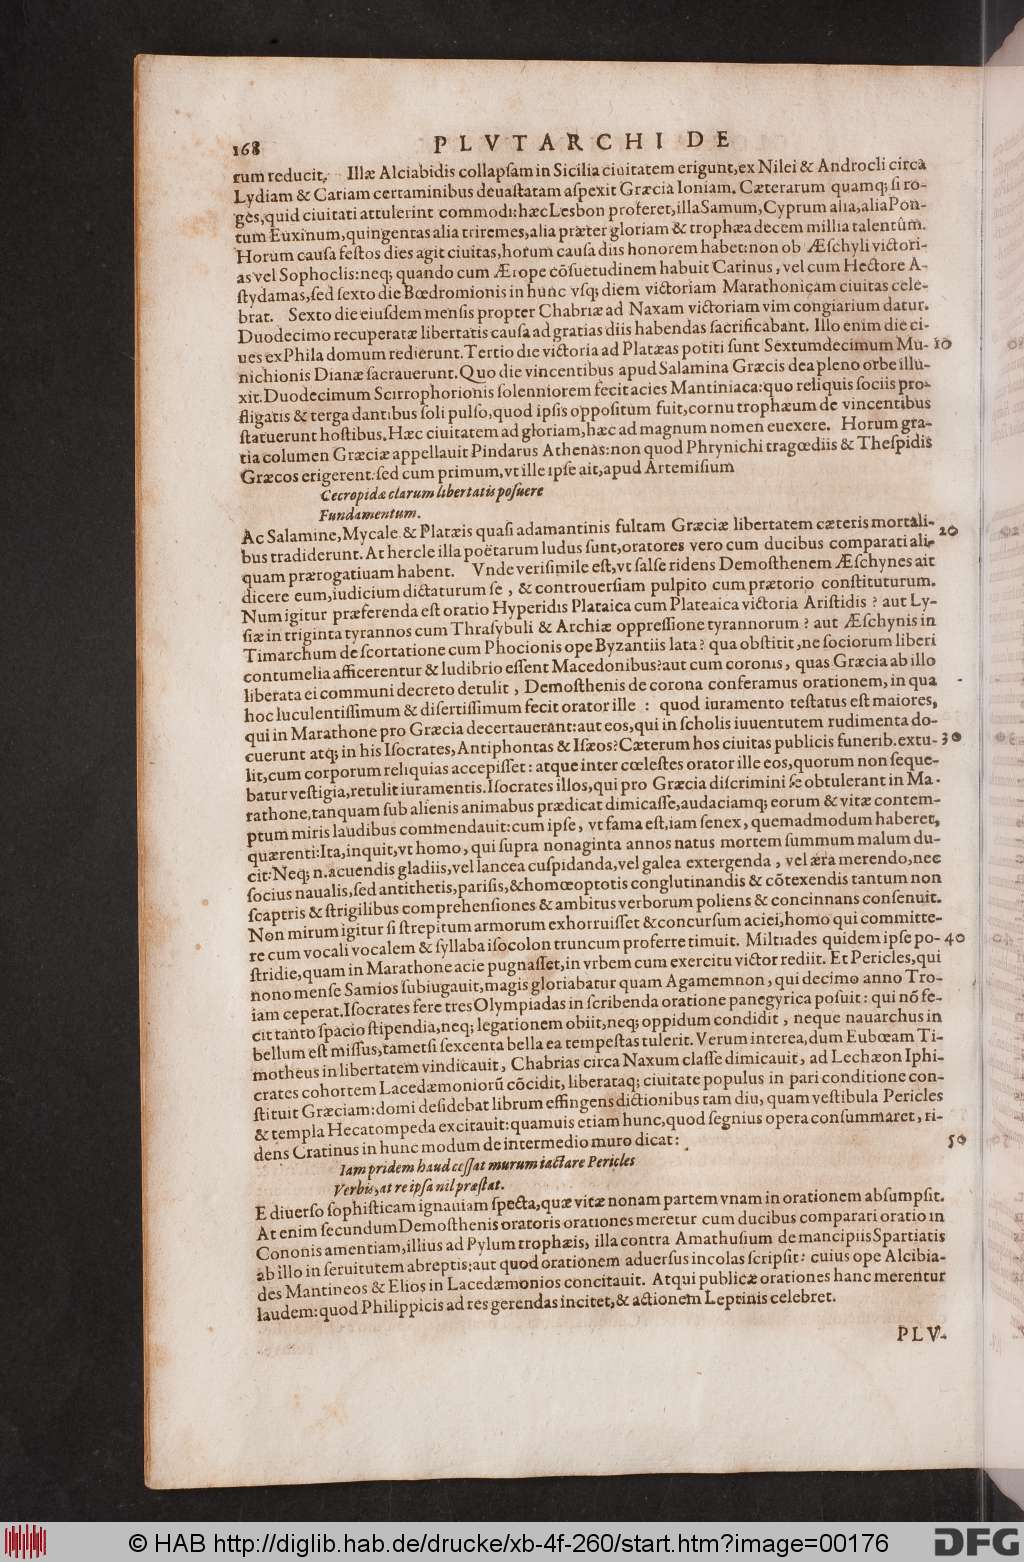 168 PLVTARCHI DE
rum reducit. Illæ Alciabidis collapſam in Sicilia ciuitatem erigunt, ex Nilei & Androcli circa
Lydiam & Cariam certaminibus deuaſtatam aſpexit Græcia Ioniam. Cæterarum quamq; ſi ro-
ges, quid ciuitati attulerint commodi: hæc Lesbon proferet, illa Samum, Cyprum alia, alia Pon-
tum Euxinum, quingentas alia triremes, alia præter gloriam & trophæa decem millia talentûm.
Horum cauſa feſtos dies agit ciuitas, horum cauſa diis honorem habet: non ob Æſchyli victori-
as vel Sophoclis: neq; quando cum Ærope cõſuetudinem habuit Carinus, vel cum Hectore A-
ſtydamas, ſed ſexto die Bœdromionis in hunc vſq; diem victoriam Marathonicam ciuitas cele-
brat. Sexto die eiuſdem menſis propter Chabriæ ad Naxam victoriam vim congiarium datur.
Duodecimo recuperatæ libertatis cauſa ad gratias diis habendas ſacrificabant. Illo enim die ci-
ues ex Phila domum redierunt. Tertio die victoria ad Platæas potiti ſunt Sextumdecimum Mu- 10
nichionis Dianæ ſacrauerunt. Quo die vincentibus apud Salamina Græcis dea pleno orbe illu-
xit. Duodecimum Scirrophorionis ſolenniorem fecit acies Mantiniaca: quo reliquis ſociis pro-
fligatis & terga dantibus ſoli pulſo, quod ipſis oppoſitum fuit, cornu trophæum de vincentibus
ſtatuerunt hoſtibus. Hæc ciuitatem ad gloriam, hæc ad magnum nomen euexere. Horum gra-
tia columen Græciæ appellauit Pindarus Athenas: non quod Phrynichi tragœdiis & Theſpidis
Græcos erigerent: ſed cum primum, vt ille ipſe ait, apud Artemiſium
Cecropidæ clarum libertatis poſuere
Fundamentum.
Ac Salamine, Mycale & Platæis quaſi adamantinis fultam Græciæ libertatem cæteris mortali- 20
bus tradiderunt. At hercle illa poëtarum ludus ſunt, oratores vero cum ducibus comparati ali-
quam prærogatiuam habent. Vnde veriſimile eſt, vt ſalſe ridens Demoſthenem Æſchynes ait
dicere eum, iudicium dictaturum ſe, & controuerſiam pulpito cum prætorio conſtituturum.
Num igitur præferenda eſt oratio Hyperidis Plataica cum Plateaica victoria Ariſtidis? aut Ly-
ſiæ in triginta tyrannos cum Thraſybuli & Archiæ oppreſſione tyrannorum? aut Æſchynis in
Timarchum de ſcortatione cum Phocionis ope Byzantiis lata? qua obſtitit, ne ſociorum liberi
contumelia afficerentur & ludibrio eſſent Macedonibus? aut cum coronis, quas Græcia ab illo
liberata ei communi decreto detulit, Demoſthenis de corona conferamus orationem, in qua
hoc luculentiſſimum & diſertiſſimum fecit orator ille: quod iuramento teſtatus eſt maiores,
qui in Marathone pro Græcia decertauerant: aut eos, qui in ſcholis iuuentutem rudimenta do-
cuerunt atq; in his Iſocrates, Antiphontas & Iſæos? Cæterum hos ciuitas publicis funerib. extu- 30
lit, cum corporum reliquias accepiſſet: atque inter cœleſtes orator ille eos, quorum non ſeque-
batur veſtigia, retulit iuramentis. Iſocrates illos, qui pro Græcia diſcrimini ſe obtulerant in Ma-
rathone, tanquam ſub alienis animabus prædicat dimicaſſe, audaciamq; eorum & vitæ contem-
ptum miris laudibus commendauit: cum ipſe, vt fama eſt, iam ſenex, quemadmodum haberet,
quærenti: Ita, inquit, vt homo, qui ſupra nonaginta annos natus mortem ſummum malum du-
cit: Neq; n. acuendis gladiis, vel lancea cuſpidanda, vel galea extergenda, vel æra merendo, nec
ſocius naualis, ſed antithetis, pariſis, & homœoptotis conglutinandis & cõtexendis tantum non
ſcaptris & ſtrigilibus comprehenſiones & ambitus verborum poliens & concinnans conſenuit.
Non mirum igitur ſi ſtrepitum armorum exhorruiſſet & concurſum aciei, homo qui committe-
re cum vocali vocalem & ſyllaba iſocolon truncum proferre timuit. Miltiades quidem ipſe po- 40
ſtridie, quam in Marathone acie pugnaſſet, in vrbem cum exercitu victor rediit. Et Pericles, qui
nono menſe Samios ſubiugauit, magis gloriabatur quam Agamemnon, qui decimo anno Tro-
iam ceperat. Iſocrates fere tres Olympiadas in ſcribenda oratione panegyrica poſuit: qui nõ fe-
cit tanto ſpacio ſtipendia, neq; legationem obiit, neq; oppidum condidit, neque nauarchus in
bellum eſt miſſus, tametſi ſexcenta bella ea tempeſtas tulerit. Verum interea, dum Eubœam Ti-
motheus in libertatem vindicauit, Chabrias circa Naxum claſſe dimicauit, ad Lechæon Iphi-
crates cohortem Lacedæmoniorũ cõcidit, liberataq; ciuitate populus in pari conditione con-
ſtituit Græciam: domi deſidebat librum effingens dictionibus tam diu, quam veſtibula Pericles
& templa Hecatompeda excitauit: quamuis etiam hunc, quod ſegnius opera conſummaret, ri-
dens Cratinus in hunc modum de intermedio muro dicat: 50
Iam pridem haud ceſſat murum iactare Pericles
Verbis, at re ipſa nil præſtat.
E diuerſo ſophiſticam ignauiam ſpecta, quæ vitæ nonam partem vnam in orationem abſumpſit.
At enim ſecundum Demoſthenis oratoris orationes meretur cum ducibus comparari oratio in
Cononis amentiam, illius ad Pylum trophæis, illa contra Amathuſium de mancipiis Spartiatis
ab illo in ſeruitutem abreptis: aut quod orationem aduerſus incolas ſcripſit: cuius ope Alcibia-
des Mantineos & Elios in Lacedæmonios concitauit. Atqui publicæ orationes hanc merentur
laudem: quod Philippicis ad res gerendas incitet, & actionem Leptinis celebret.
PLV-
© HAB http://diglib.hab.de/drucke/xb-4f-260/start.htm?image=00176 DFG